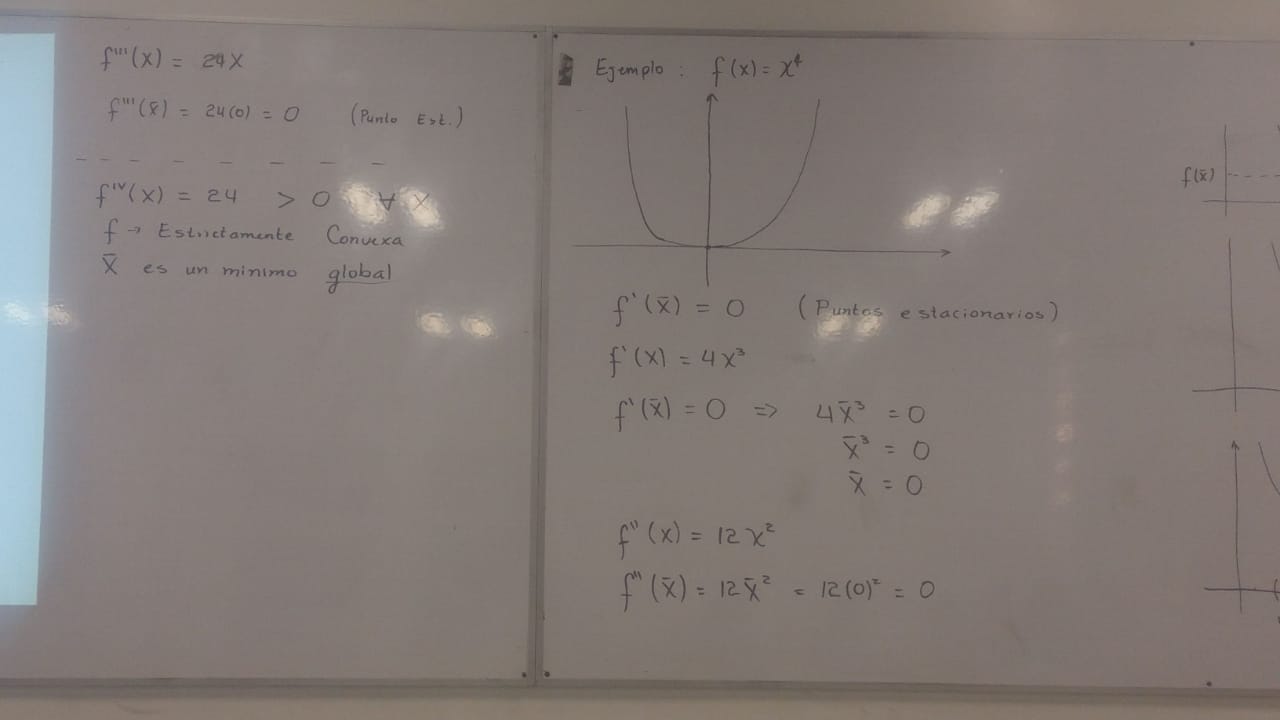 f'''(x) = 24x
f'''(x̄) = 24(0) = 0 (Punto Est.)
f^IV(x) = 24 > 0 ∀ x
f → Estrictamente Convexa
x̄ es un minimo global
Ejemplo : f(x) = x⁴
f'(x̄) = 0 (Puntos estacionarios)
f'(x) = 4x³
f'(x̄) = 0 => 4x̄³ = 0
x̄³ = 0
x̄ = 0
f''(x) = 12x²
f''(x̄) = 12x̄² = 12(0)² = 0
f(x̄)